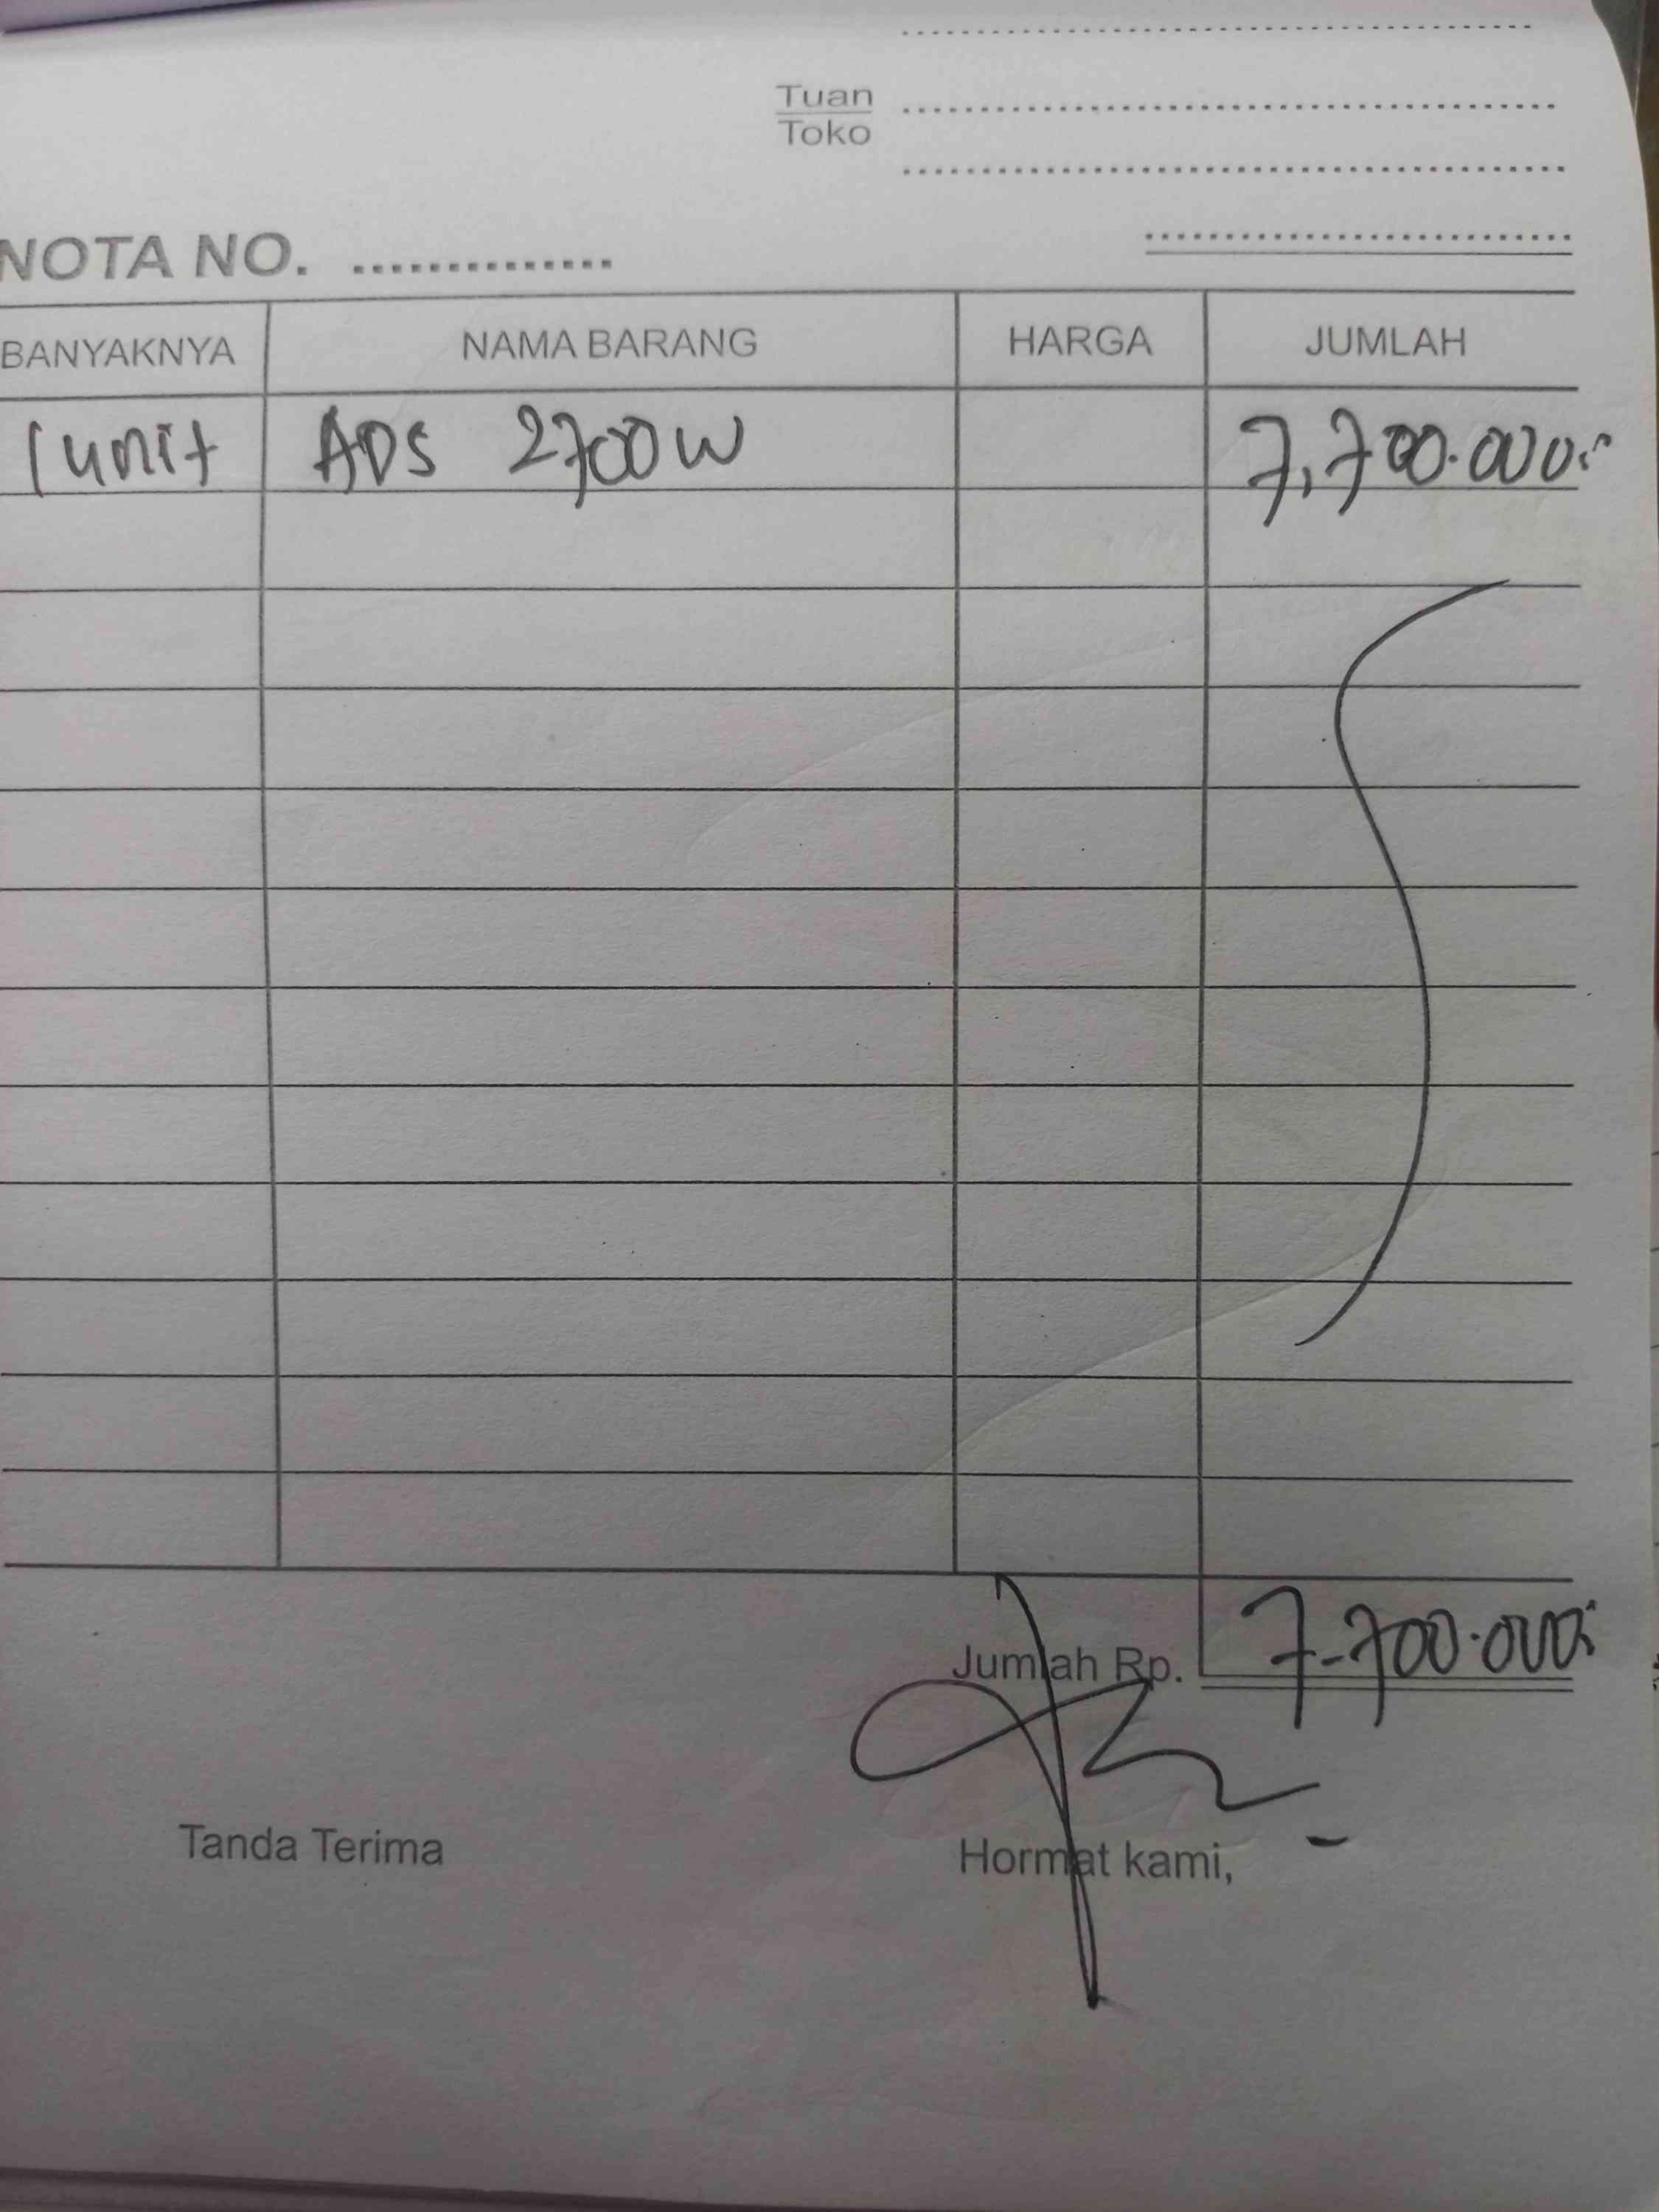 Tuan
Toko
NOTA NO. ..............
BANYAKNYA NAMA BARANG HARGA JUMLAH
1 unit ADS 2700W 7,700.000
Jumlah Rp. 7-700.000
Tanda Terima Hormat kami,